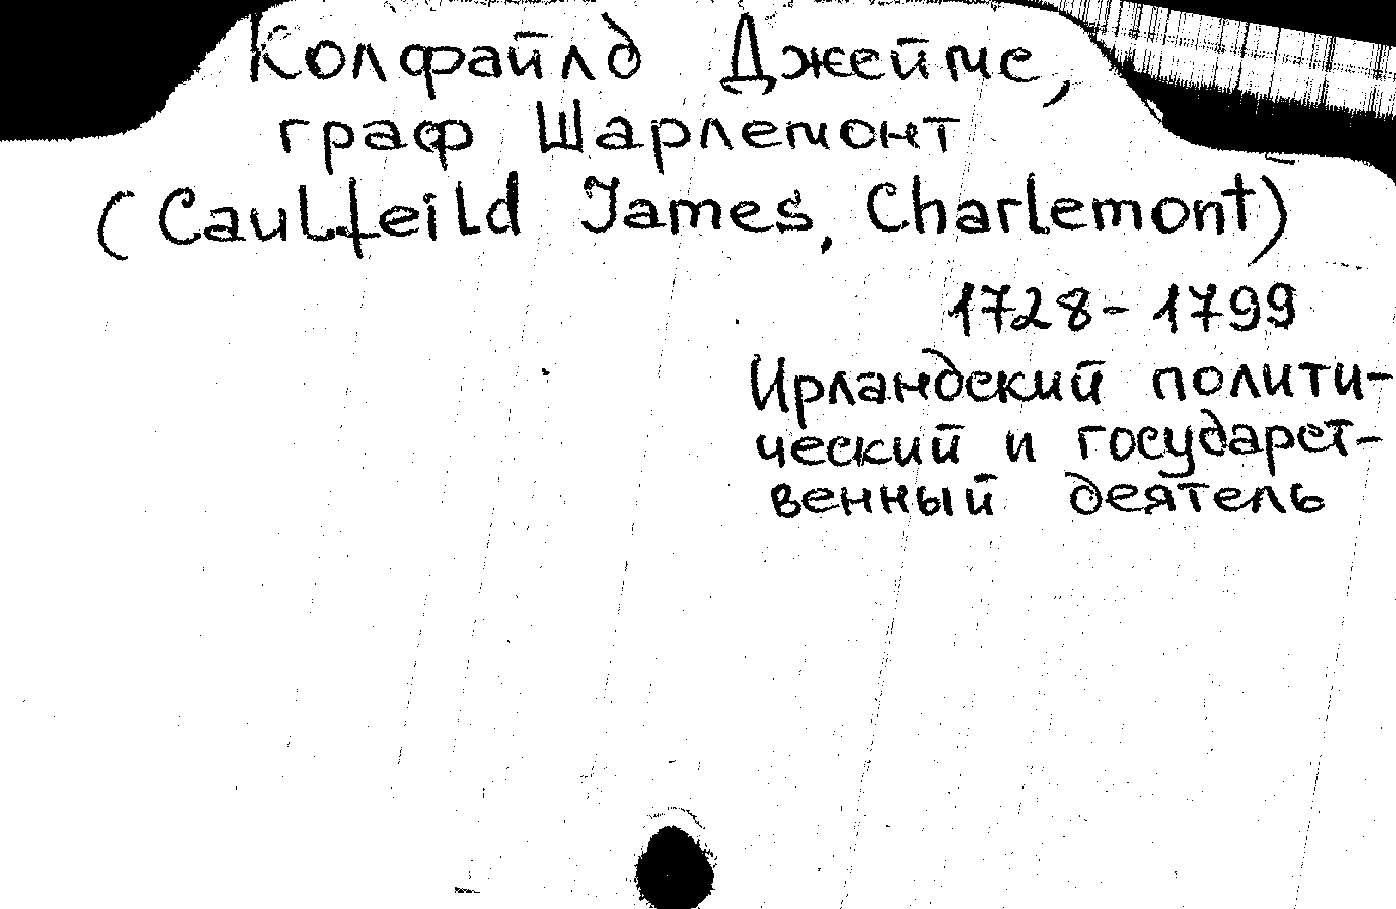 Колфайлд Джеймс,
граф Шарлемонт
(Caulfeild James, Charlemont)
1728-1799
Ирландский полити-
ческий и государст-
венный деятель